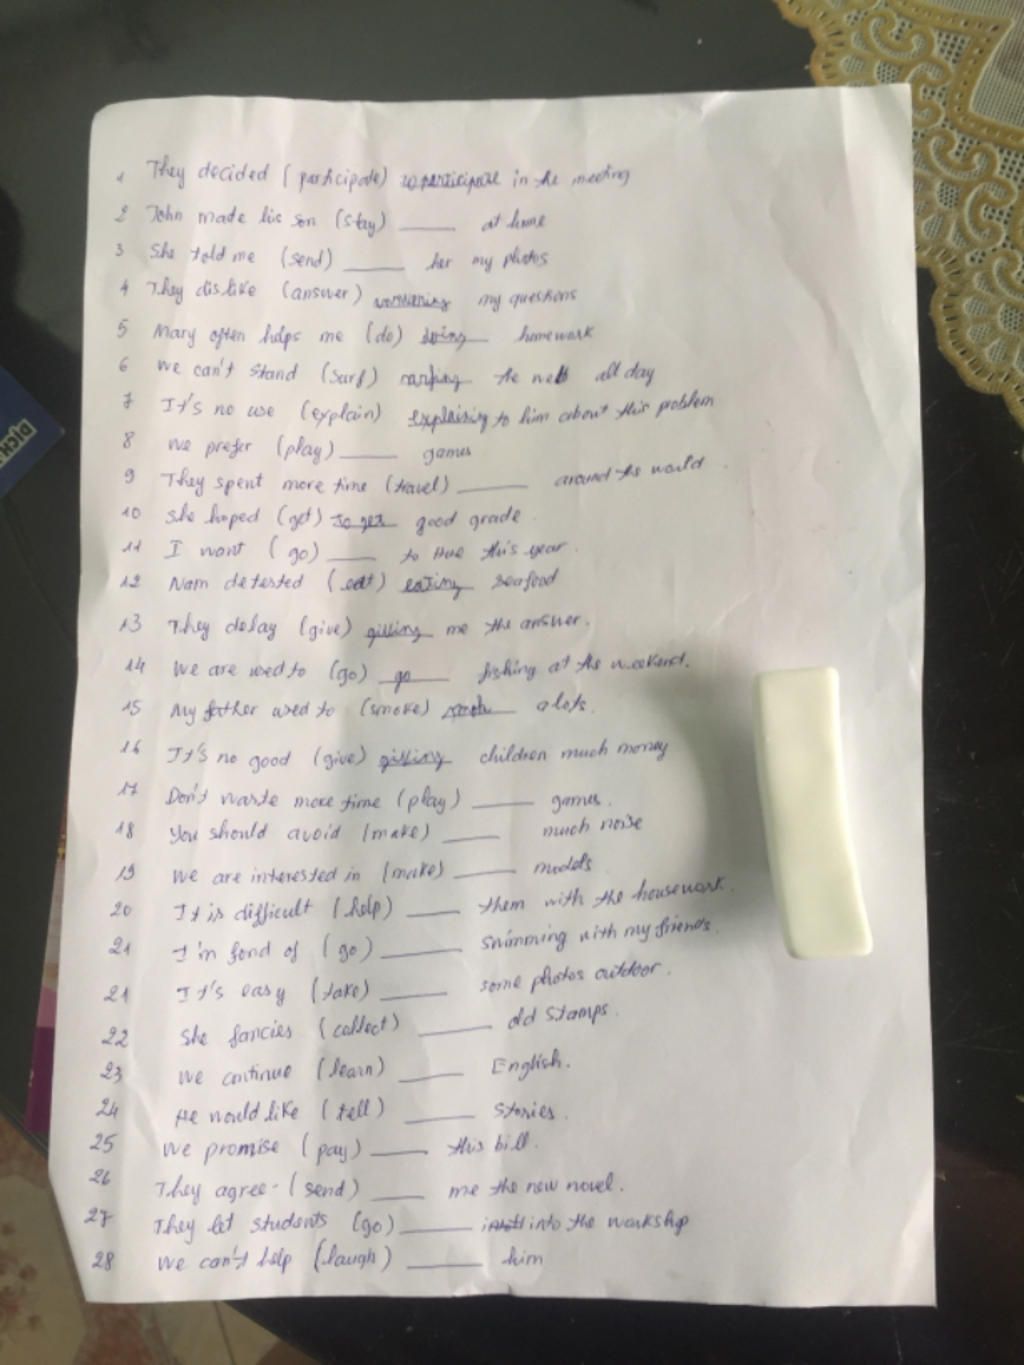 1 They decided (participate) to participate in the meeting
2 John made his son (stay) ____ at home
3 She told me (send) ____ her my photos
4 They dislike (answer) my questions
5 Mary often helps me (do) doing homework
6 We can't stand (surf) surfing the web all day
7 It's no use (explain) explaining to him about this problem
8 We prefer (play) ____ games
9 They spent more time (travel) ____ around the world
10 She hoped (get) to get good grade
11 I want (go) ____ to Hue this year.
12 Nam detested (eat) eating seafood
13 They delay (give) me the answer.
14 We are used to (go) go fishing at the weekend.
15 My father used to (smoke) a lots.
16 It's no good (give) children much money
17 Don't waste more time (play) ____ games.
18 You should avoid (make) ____ much noise
19 We are interested in (make) ____ models
20 It is difficult (help) ____ them with the housework.
21 I'm fond of (go) ____ swimming with my friends.
21 It's easy (take) ____ some photos outdoor.
22 She fancies (collect) ____ old stamps.
23 We continue (learn) ____ English.
24 He would like (tell) ____ stories.
25 We promise (pay) ____ this bill.
26 They agree (send) ____ me the new novel.
27 They let students (go) ____ into the workshop
28 We can't help (laugh) ____ him